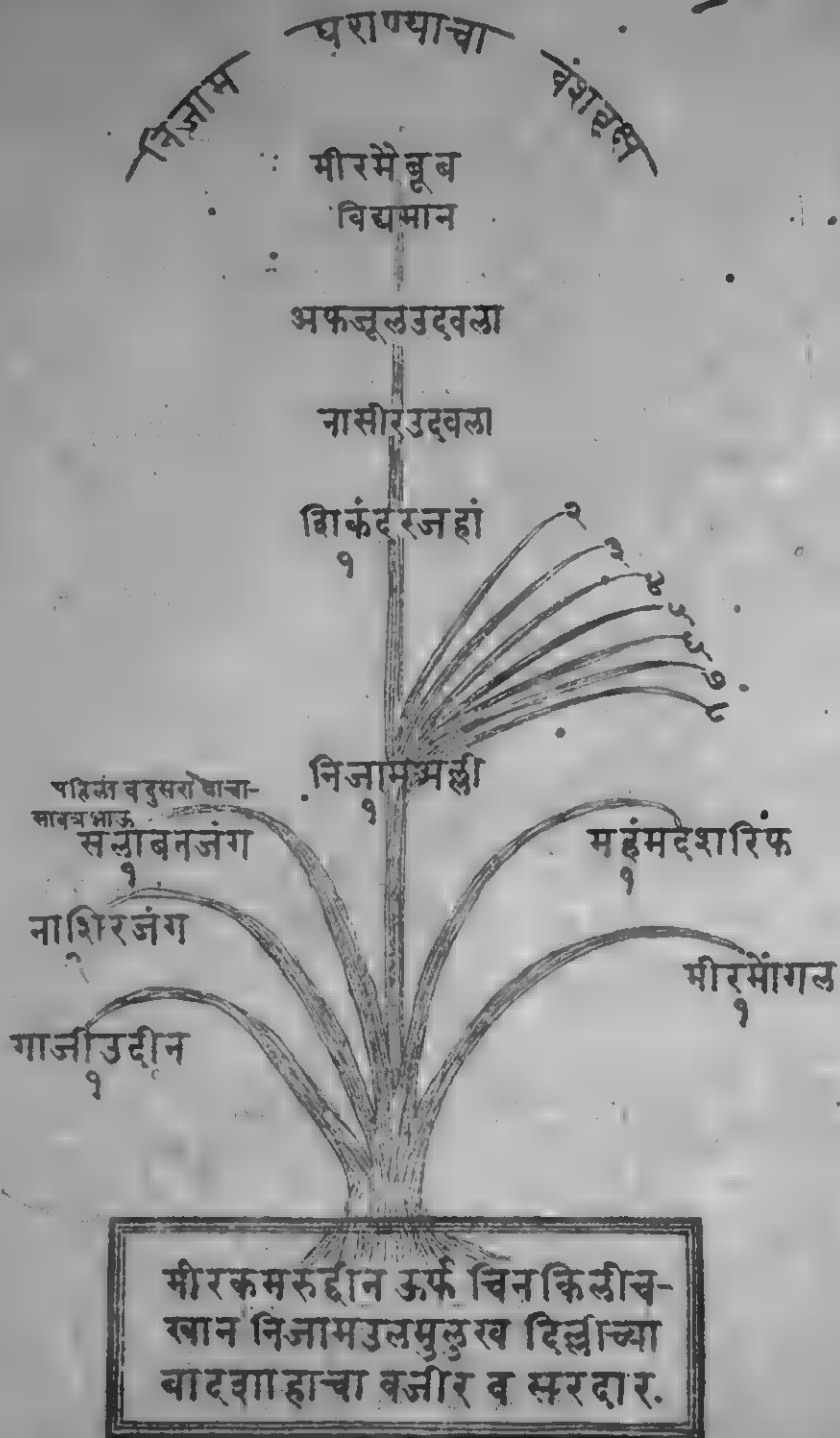 निजाम घराण्याचा वंशवृक्ष
मीरमेबूब
विद्यमान
अफजूलउदवला
नासीरउदवला
शिकंदरजहां
१
२
३
४
५
६
७
८
निजामअल्ली
१
पहिला व दुसरा याचा-
सावत्र भाऊ
सलाबतजंग
१
महंमदशरिफ
१
नाशिरजंग
२
मीरमोंगल
१
गाजीउदीन
१
मीरकमरुद्दीन ऊर्फ चिनकिलीच-
खान निजामउलमुलुख दिल्लीच्या
बादशाहाचा वजीर व सरदार.